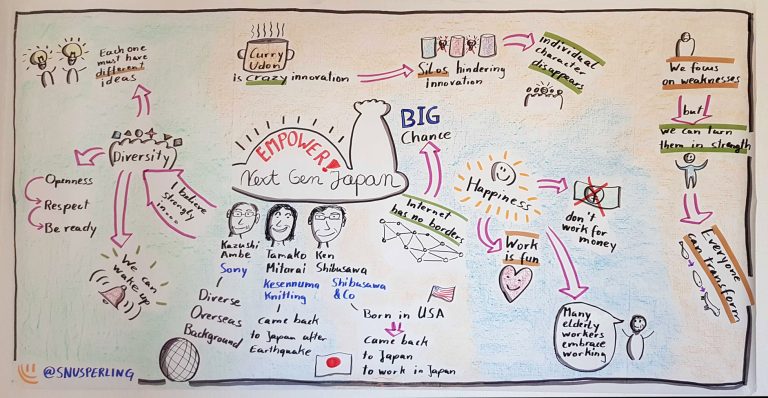 Each one
must have
different
ideas
Curry
Udon
is crazy innovation
Silos hindering
innovation
Individual
character
disappears
We focus
on weaknesses
but
we can turn
them in strength
Everyone
can transform
EMPOWER!
Next Gen Japan
BIG
Chance
Internet
has no borders
Diversity
Openness
Respect
Be ready
We can
wake up
I believe
strongly
in...
Happiness
don't
work for
money
Work
is fun
Many
elderly
workers
embrace
working
Kazushi
Ambe
Sony
Diverse
Overseas
Background
Tamako
Mitarai
Kesennuma
Knitting
came back
to Japan after
Earthquake
Ken
Shibusawa
Shibusawa
& Co
Born in USA
came back
to Japan
to work in Japan
@SNUSPERLING